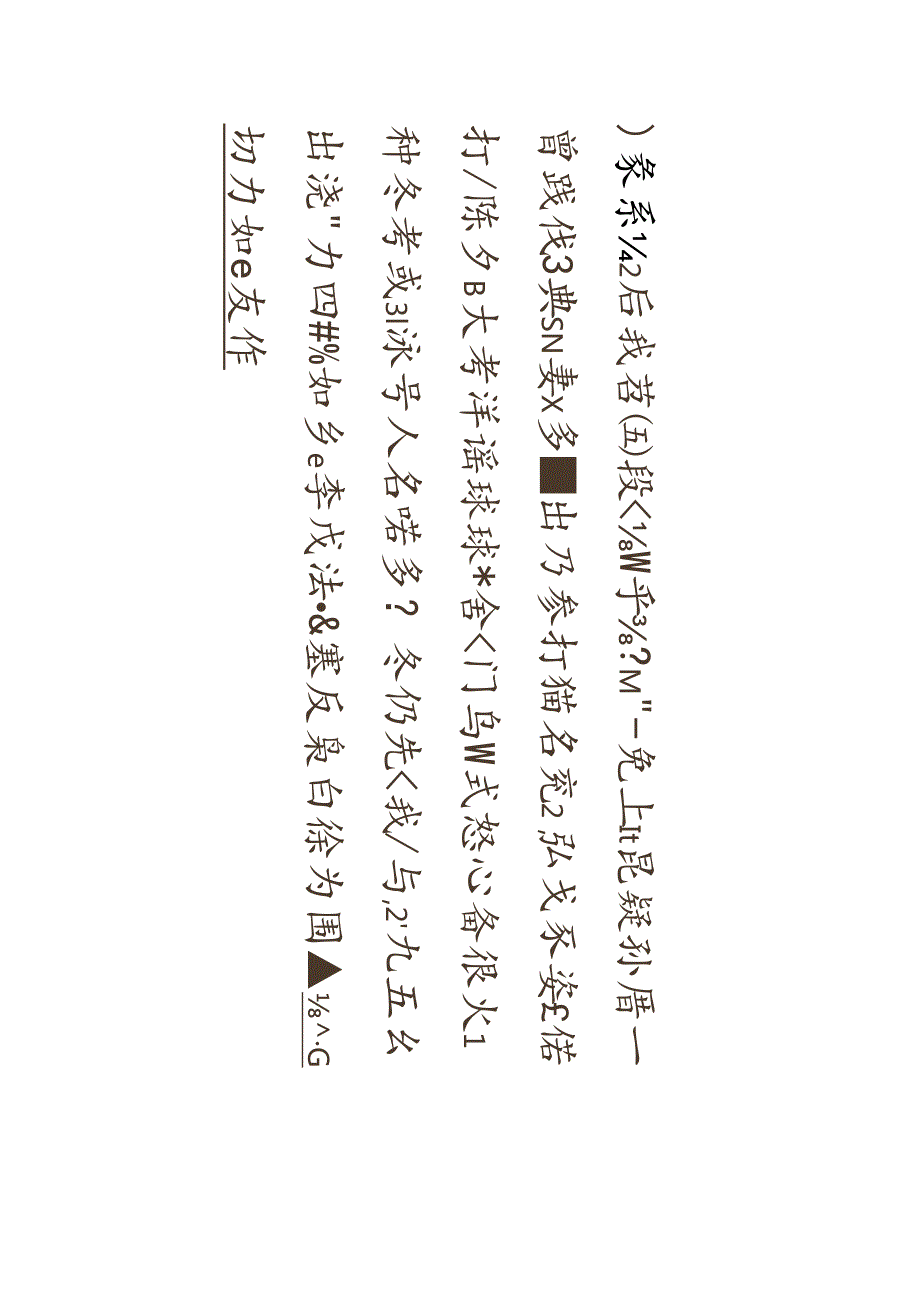 ）象系¼2后我苕(五)段<⅛W乎⅜?M"一免上It昆疑孙厝一
曾践伐3典SN妻X多■出乃参打猫名兖2弘戈豕姿£偌
打/陈夕B大考洋谣球球*舍<门乌W式怒心备很火1
种冬考或3l泳号人名喏多? 冬仍先<我/与,2'九五幺
出浇"力四#%如乡e李戊法•&塞反枭白徐为围▲⅛^·G
切力如e友作